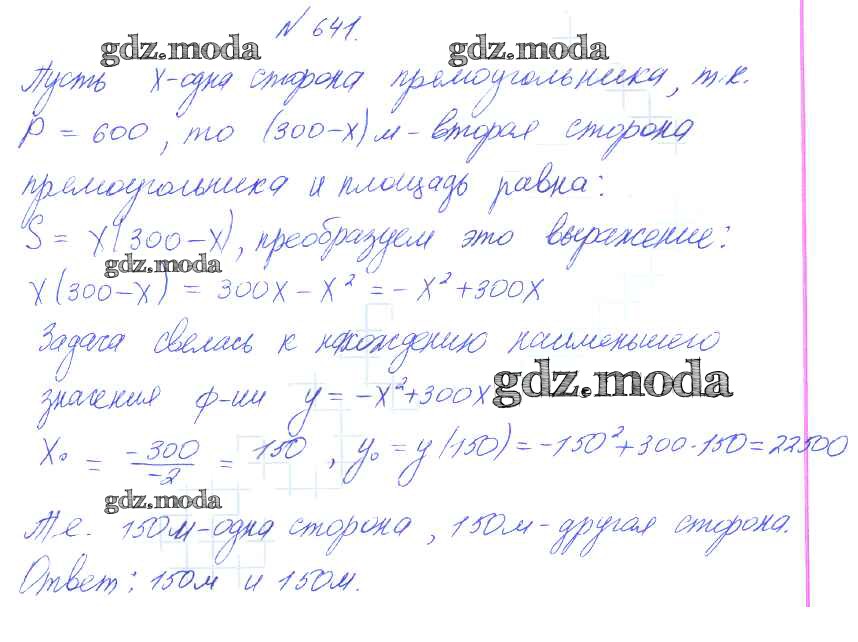 № 641.
gdz.moda gdz.moda
Пусть х-одна сторона прямоугольника, т.к.
P = 600, то (300-х) м - вторая сторона
прямоугольника и площадь равна:
S = х(300-х), преобразуем это выражение:
gdz.moda
х(300-х) = 300х - х² = - х² + 300х
Задача свелась к нахождению наименьшего
значения ф-ии y = -х² + 300х
gdz.moda
х₀ = -300/-2 = 150, y₀ = y(150) = -150² + 300·150 = 22500
gdz.moda
Т.е. 150м-одна сторона, 150м-другая сторона.
Ответ: 150м и 150м.